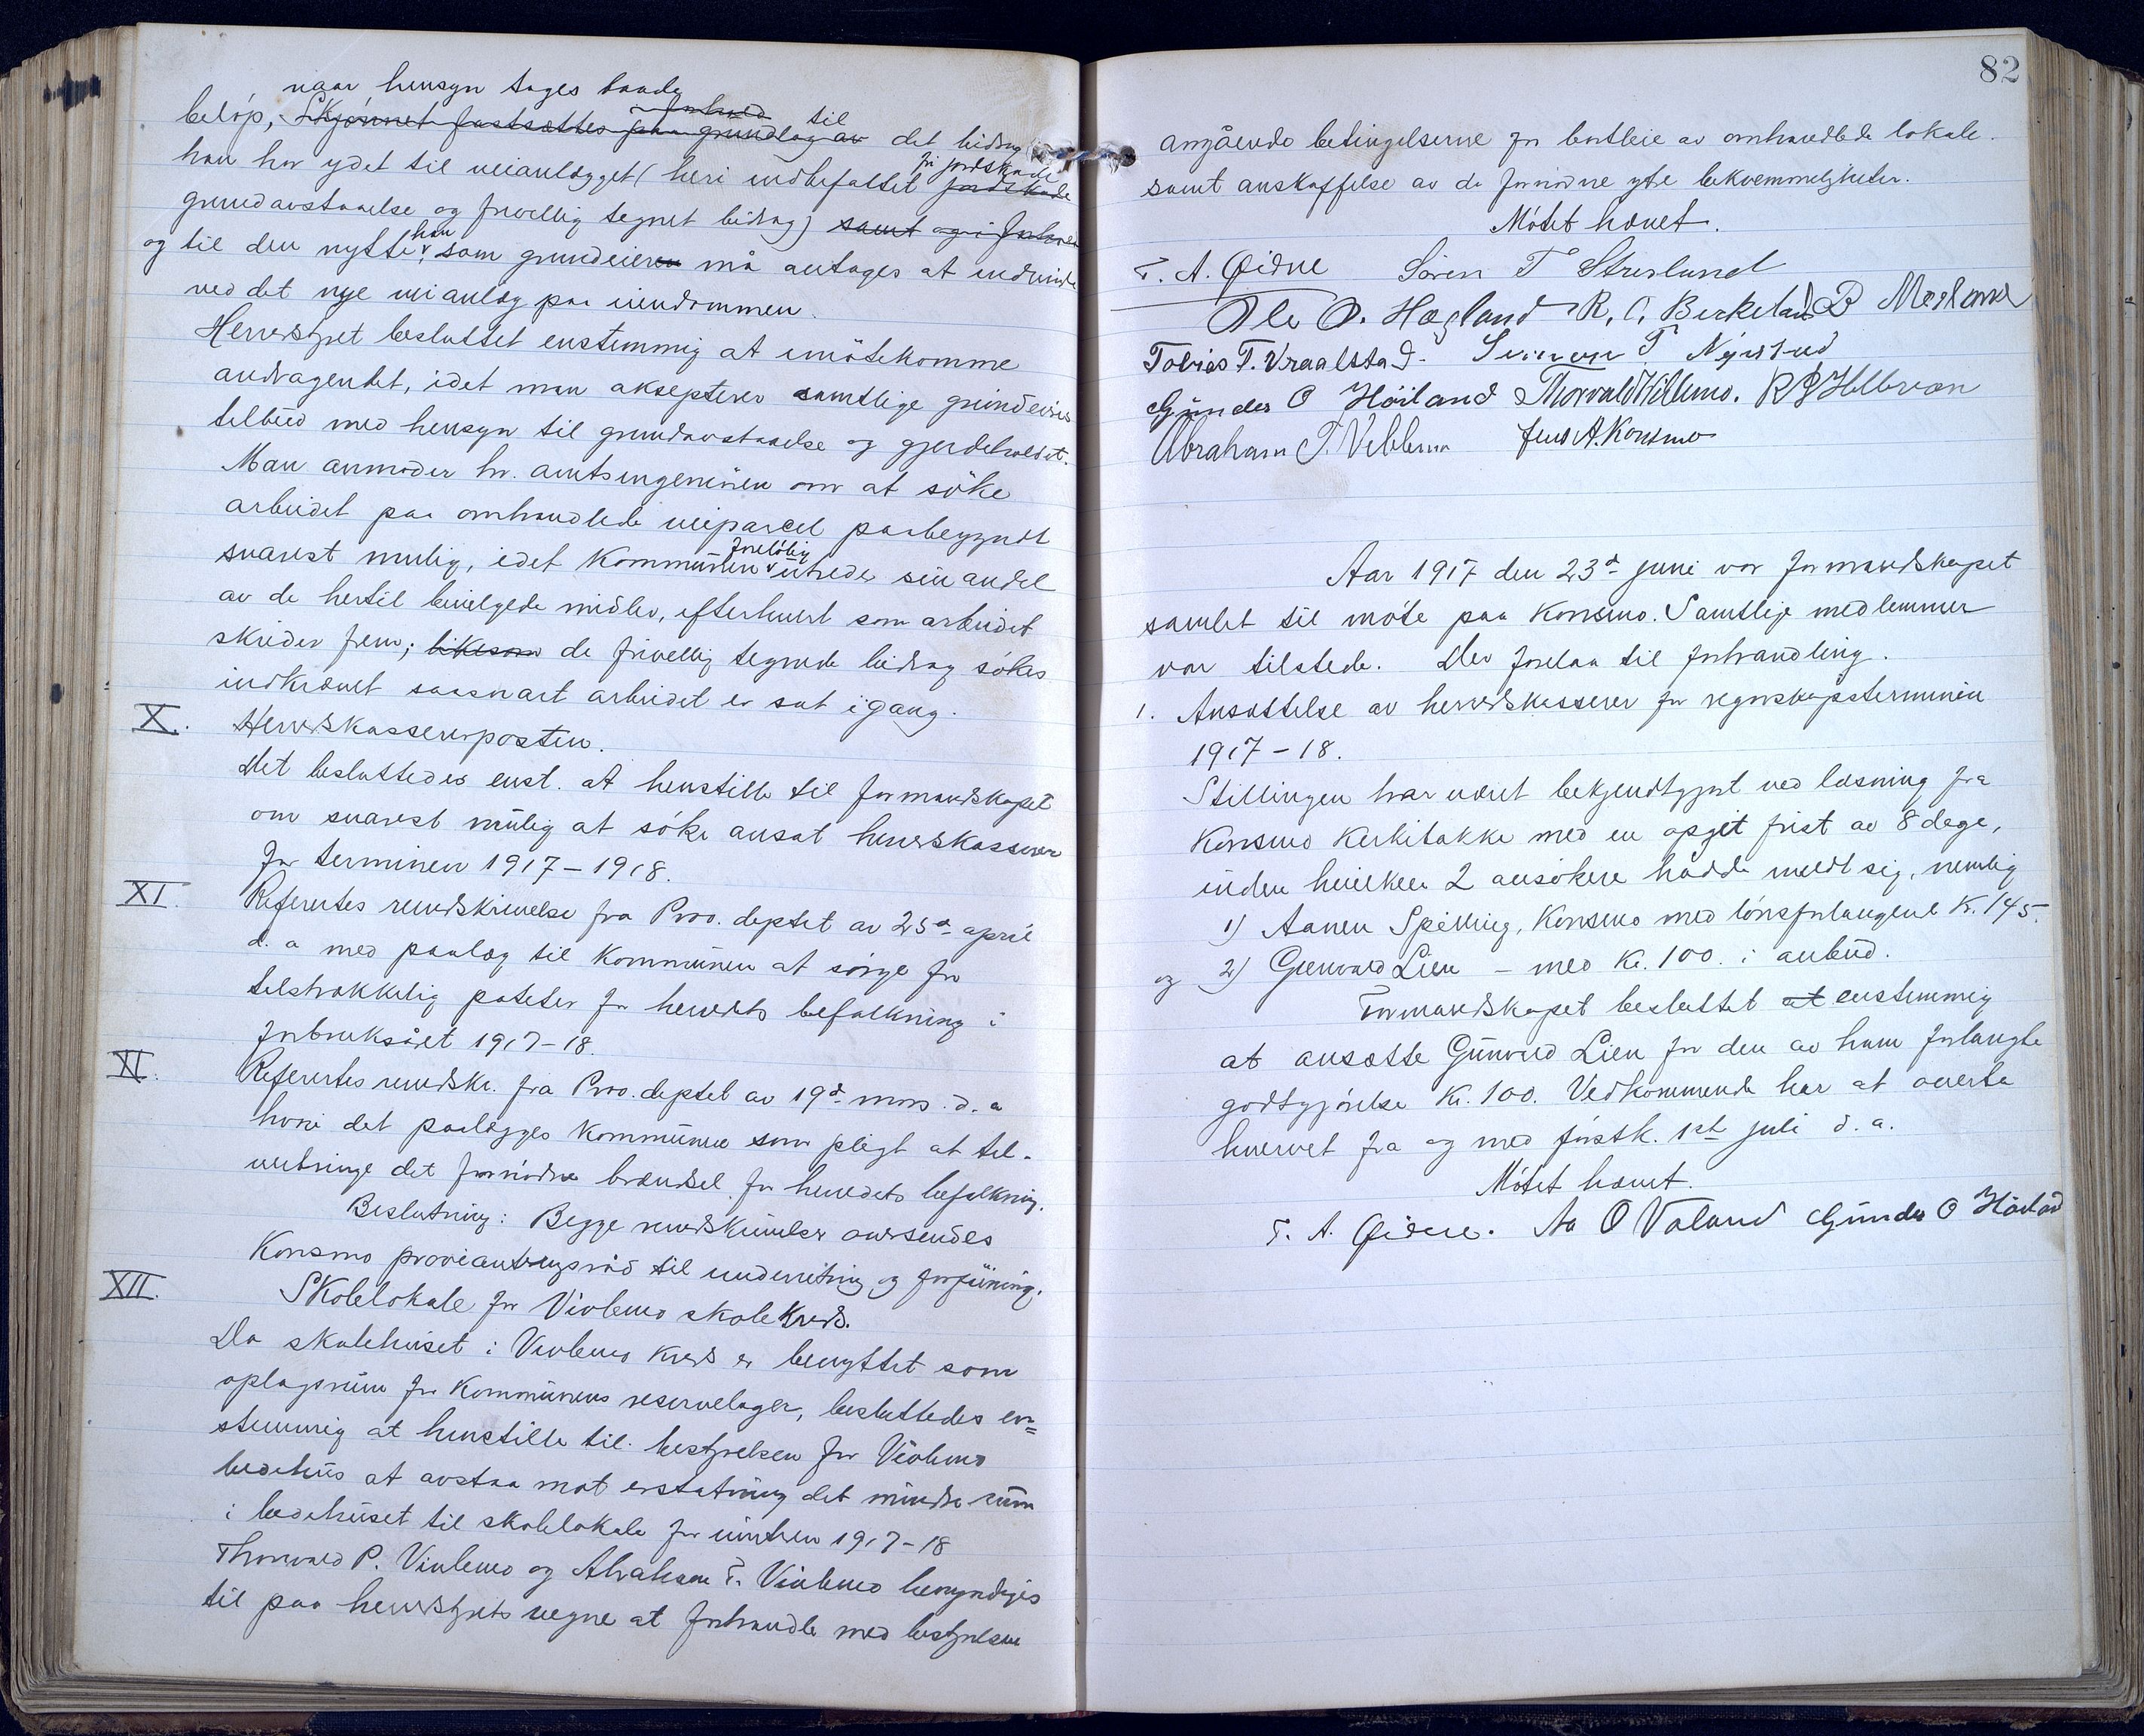 naar hensyn tages baade
beløp, Skjønnet fastsættes i forhold paa grundlag av til det bidrag
han har ydet til veianlægget (heri indbefattet for jordskade jordskade
grundavstaaelse og frivellig tegnet bidrag) samt og i forhold
og til den nytte han som grundeieren må antages at indvinde
ved det nye veianlæg paa eiendommen.
Herredstyret besluttet enstemmig at imötekomme
andragendet, idet man aksepterer samtlige grundeieres
tilbud med hensyn til grundavstaaelse og gjerdeholdet.
Man anmoder hr. amtsingeniören om at söke
arbeidet paa omhandlede veiparcel paabegyndt
snarest mulig, idet Kommunen forelöbig utreder sin andel
av de hertil bevilgede midler, efterhvert som arbeidet
skrider frem; likesom de frivellig tegnede bidrag sökes
indkrævet saasnart arbeidet er sat igang.
X. Herredskassererposten.
Det besluttedes enst. at henstille til formandskapet
om snarest mulig at söke ansat herredskasserer
for terminen 1917-1918.
XI. Referertes rundskrivelse fra Prov. deptet av 25de april
d. a med paalæg til Kommunen at sörge for
tilstrækkelig poteter for herredets befolkning i
forbruksåret 1917-18.
XI. Referertes rundskr. fra Prov. deptet av 19de mrs. d. a
hvori det paalægges Kommunen som pligt at til-
veiebringe det fornödne brændsel for herredets befolkning.
Beslutning: Begge rundskrivelser oversendes
Konsmo provianteringsråd til underretning og forföining.
XII. Skolelokale for Vivlemo skolekreds.
Da skolehuset i Vivlemo kreds er benyttet som
oplagsrum for Kommunens reservelager, besluttedes en=
stemmig at henstille til bestyrelsen for Vivlemo
bedehus at avstaa mot erstatning det mindre rum
i bedehuset til skolelokale for vinteren 1917-18
Thorvald P. Vivlemo og Abraham T. Vivlemo bemyndiges
til paa herredstyrets vegne at forhandle med bestyrelsen
82
angående betingelserne for bortleie av omhandlede lokale.
samt anskaffelse av de fornödne ytre bekvemmeligheter.
Mötet hævet.
T. A. Öidne Sören T Strislund
Ole O. Hægland R. O. Birkeland B
Tobias T. Vraalstad. T
Gunder O Höiland Thorvald
Abraham T. Jens A. Konsmo
Aar 1917 den 23de juni var formandskapet
samlet til möte paa Konsmo. Samtlige medlemmer
var tilstede. Der forelaa til forhandling.
1. Ansættelse av herredskasserer for regnskapsterminen
1917-18.
Stillingen har været bekjendtgjort ved læsning fra
Konsmo Kirkebakke med en opgit frist av 8 dage,
inden hvilken 2 ansökere hadde meldt sig, nemlig
1) Aanen Spilling, Konsmo med lönsforlangende Kr. 145.
og 2) Gunvald Lien - med Kr. 100. i anbud.
Formandskapet besluttet at enstemmig
at ansætte Gunvald Lien for den av ham forlangte
godtgjörelse Kr. 100. Vedkommende har at overta
hvervet fra og med förstk. 1st juli d. a.
Mötet hævet.
T. A. Öidne. Aa O Valand Gunder O Höiland